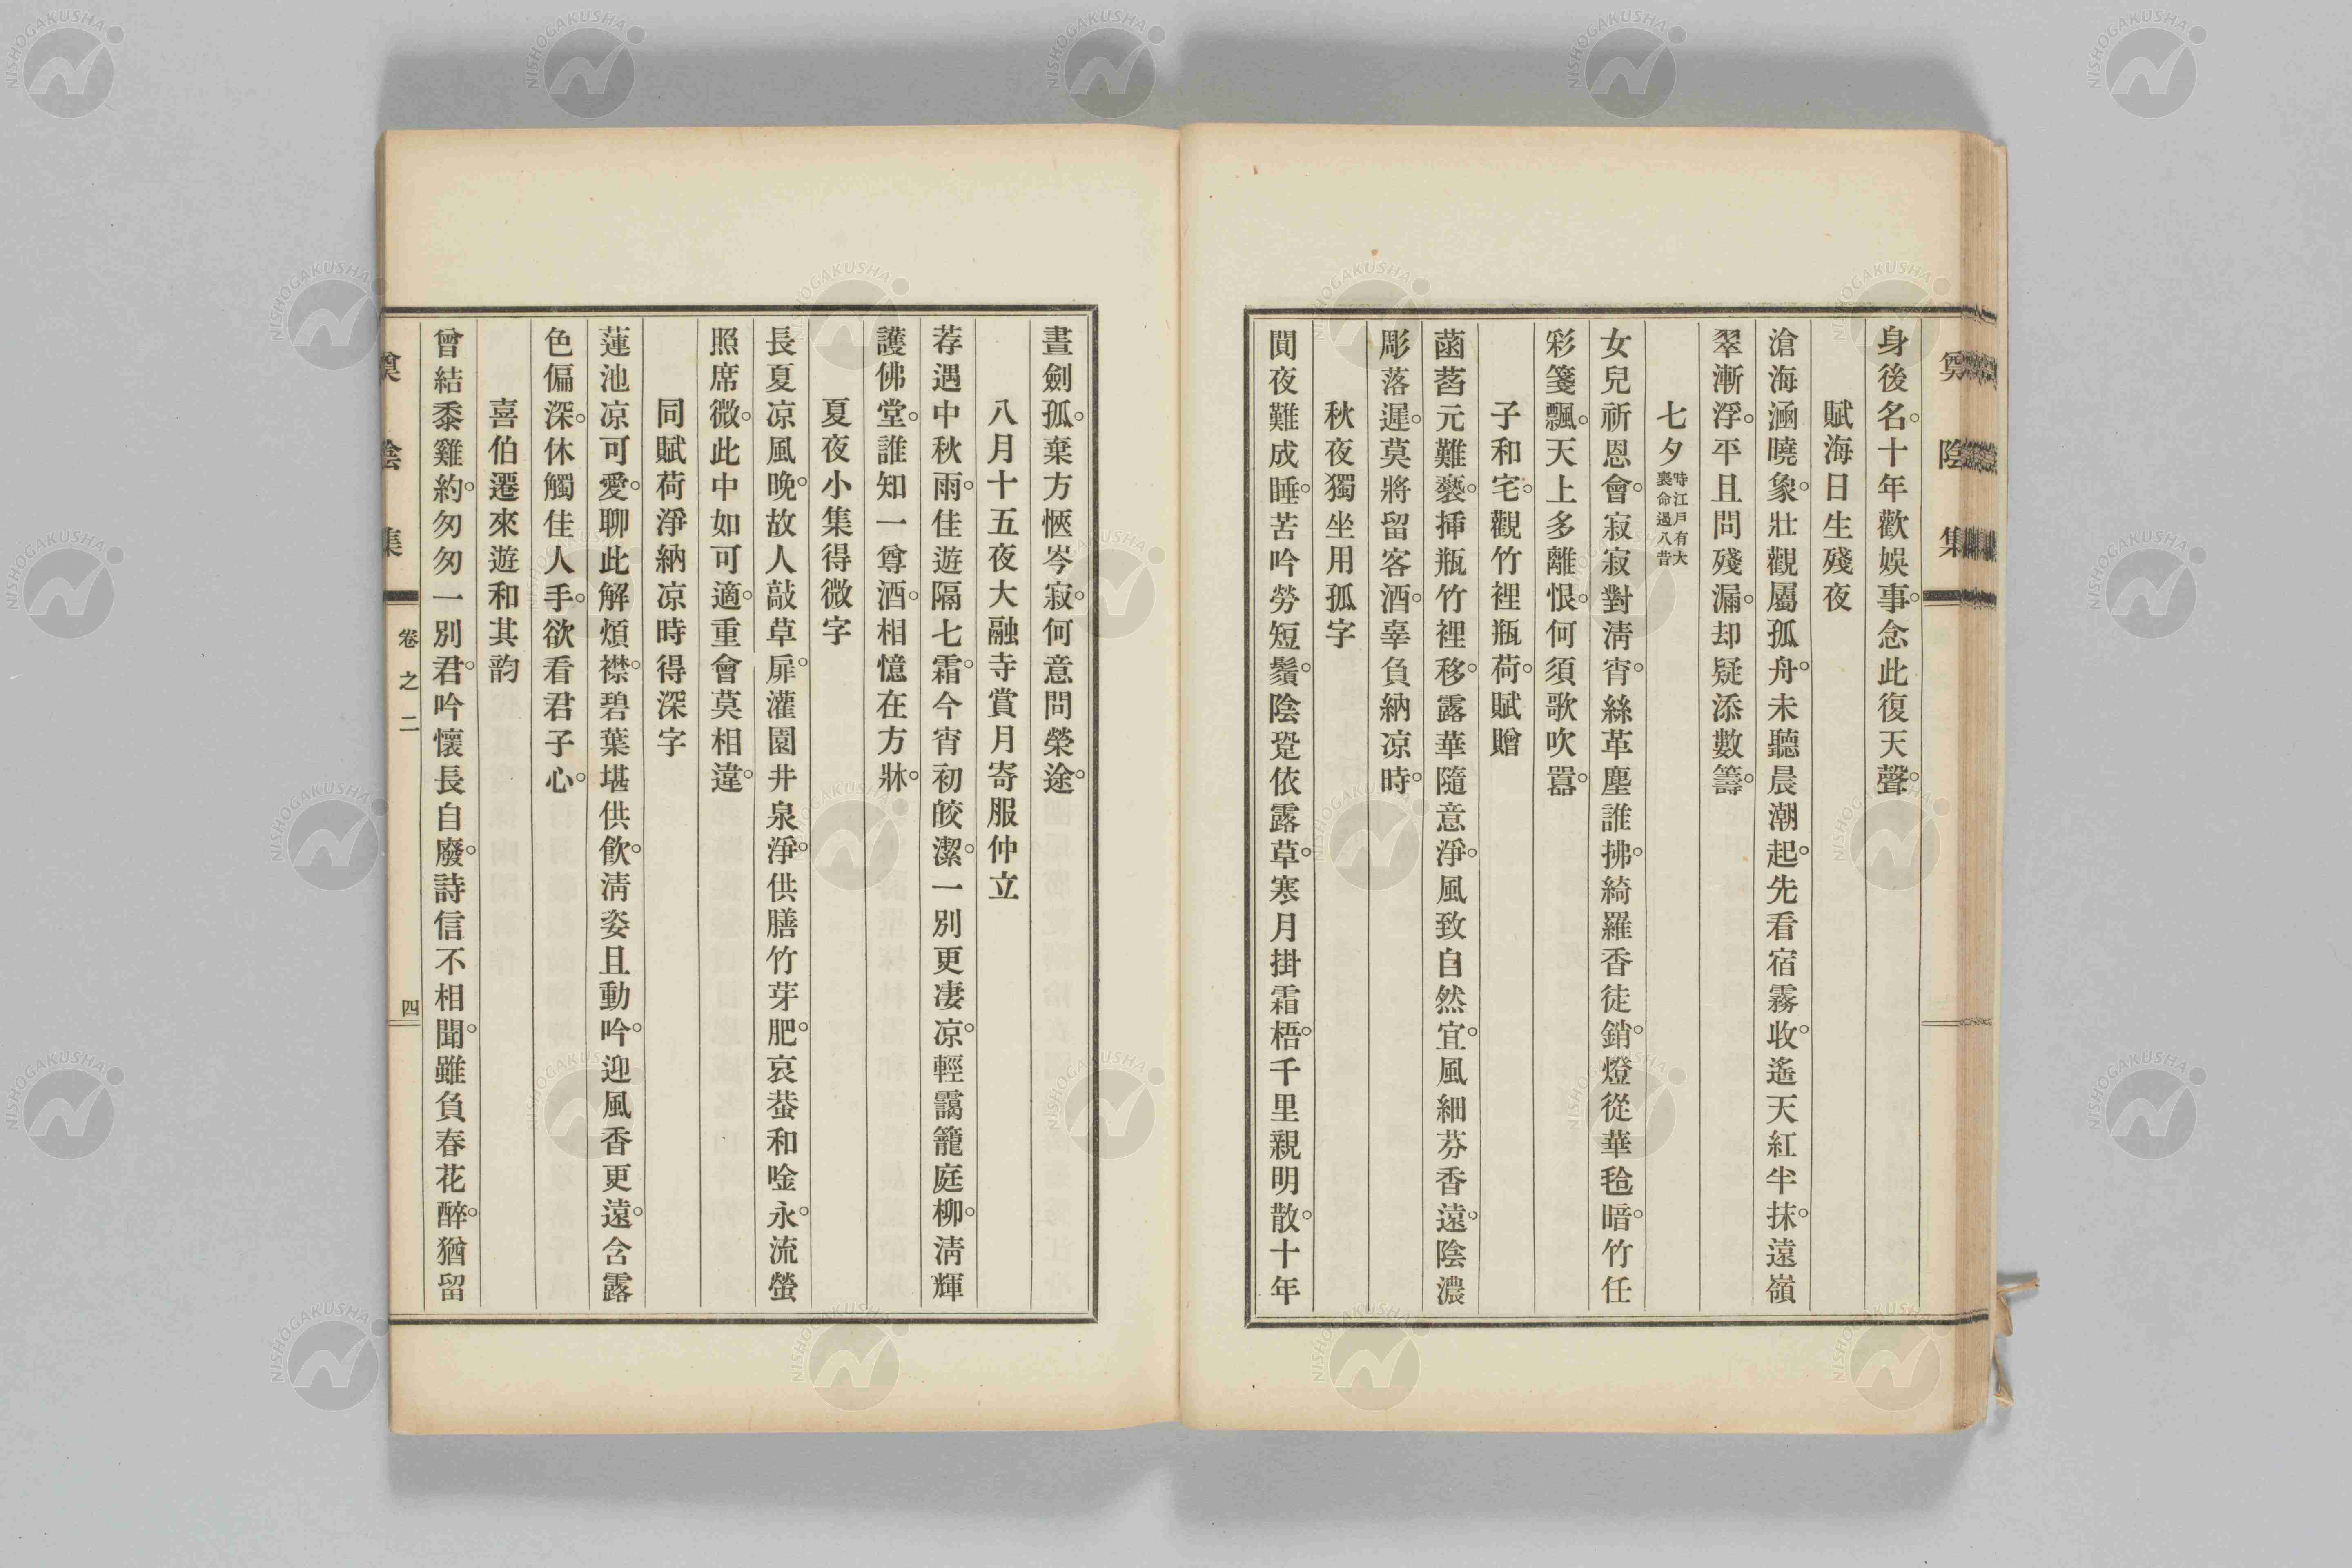 身後名。十年歡娯事。念此復天聲。
賦海日生殘夜
滄海涵曉象。壯觀屬孤舟。未聽晨潮起。先看宿霧收。遙天紅半抹。遠嶺
翠漸浮。平且問殘漏。却疑添數籌。
七夕時江戸有大裏命過八昔
女兒祈恩會。寂寂對淸宵。絲革塵誰拂。綺羅香徒銷。燈從華毱暗。竹任
彩箋飄。天上多離恨。何須歌吹囂。
子和宅。觀竹裡瓶荷。賦贈
菡萏元難褻。挿瓶竹裡移。露華隨意淨。風致自然宜。風細芬香遠。陰濃
彫落遲。莫將留客酒。辜負納凉時。
秋夜獨坐用孤字
閒夜難成睡。苦吟勞短鬚。陰跫依露草。寒月掛霜梧。千里親明散。十年
晝劍孤。棄方愜岑寂。何意問榮途。
八月十五夜大融寺賞月寄服仲立
荐遇中秋雨。佳遊隔七霜。今宵初皎潔。一別更凄凉。輕靄籠庭柳。淸輝
護佛堂。誰知一尊酒。相憶在方牀。
夏夜小集得微字
長夏凉風晩。故人敲草扉。灌園井泉淨。供膳竹芽肥。哀蛬和唫永。流螢
照席微。此中如可適。重會莫相違。
同賦荷淨納凉時得深字
蓮池凉可愛。聊此解煩襟。碧葉堪供飮。淸姿且動吟。迎風香更遠。含露
色偏深。休觸佳人手。欲看君子心。
喜伯遷來遊和其韵
曾結黍雞約。匆匆一別君。吟懷長自廢。詩信不相聞。雖負春花醉。猶留
陰集
卷之二
四
NISHOGAKUSHA